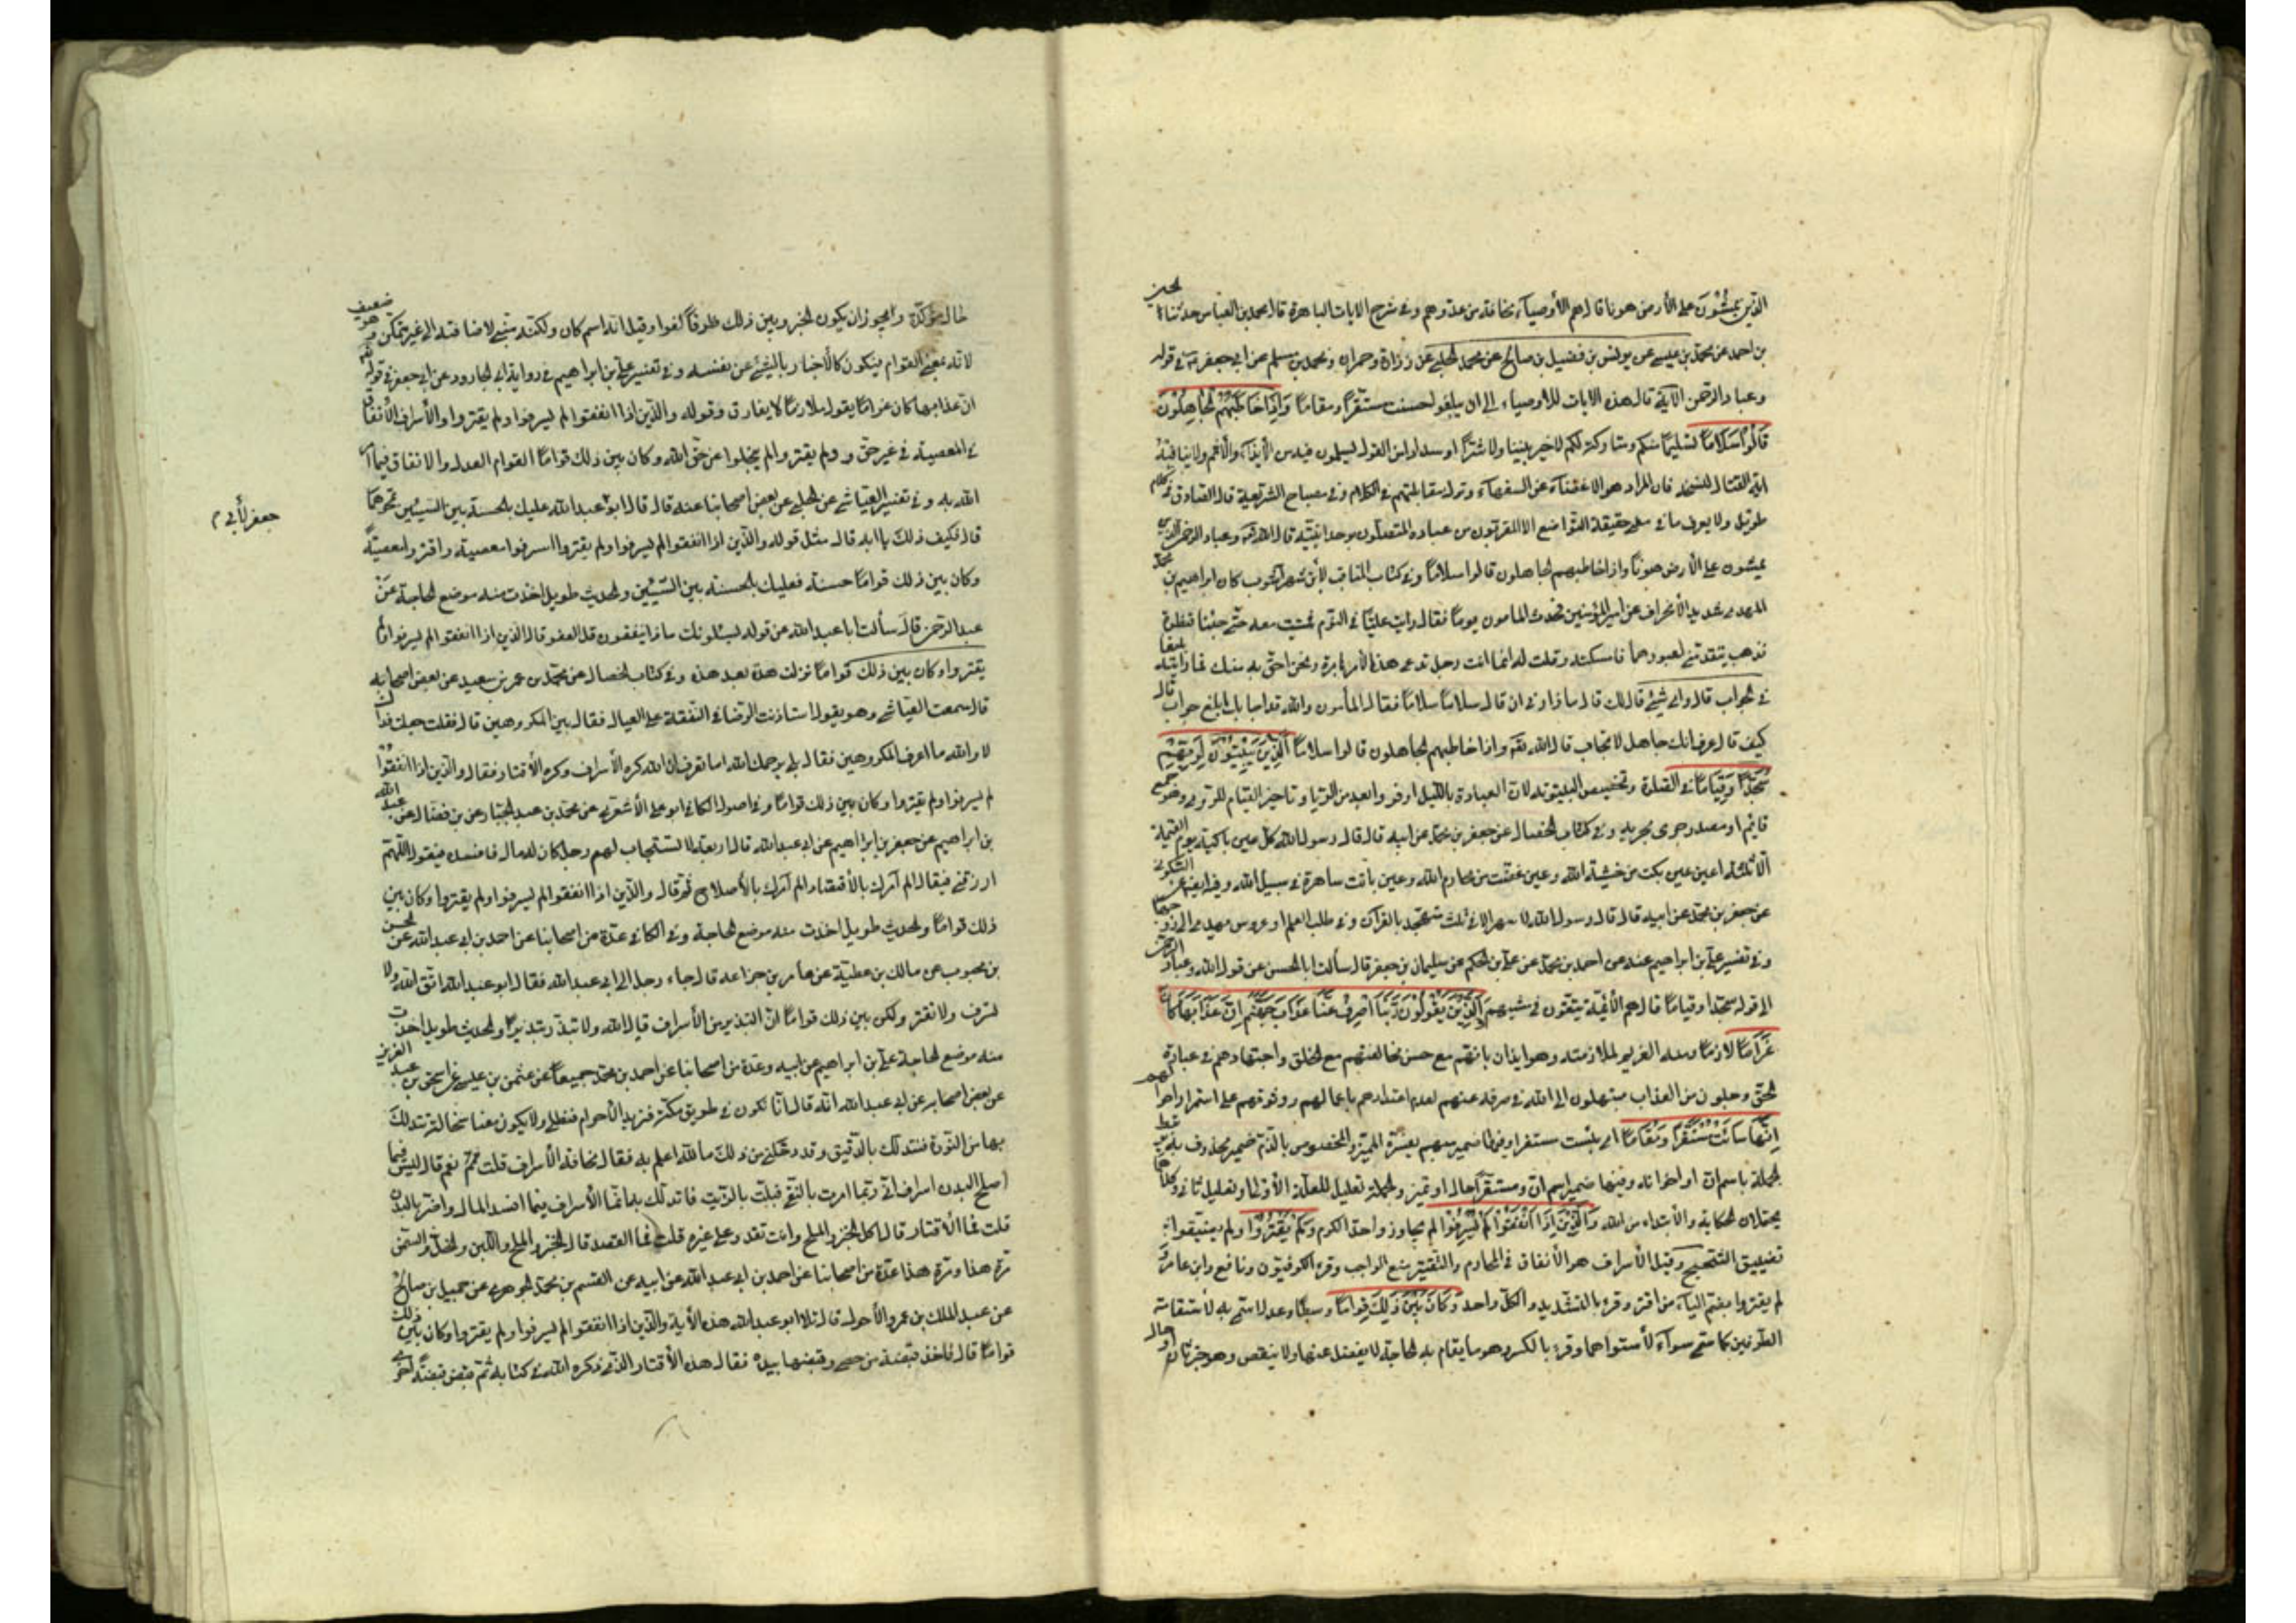 الذين يمشون على الأرض هونا قال هم الأوصياء مخافة من عدوهم وفي شرح الايات الباهرة قال محمد بن العباس حدثنا الحسين
بن احمد عن محمد بن عيسى عن يونس بن فضيل بن صالح عن محمد الحلبي عن زرارة وحمران ومحمد بن مسلم عن ابي جعفر في قوله
وعباد الرحمن الآية قال هذه الايات للأوصياء الى ان يبلغوا حسنت مستقرا ومقاما وَاِذَا خَاطَبَهُمُ الْجَاهِلُونَ
قَالُوا سَلَامًا تسليما منكم ومتاركة لكم لا خير بيننا ولا شرّا او سدادا من القول يسلمون فيه من الأيذاء والأثم ولا ينافيه
اية القتال لنسخه فان المراد هو الاغضاء عن السفهاء وترك مقابلتهم في الكلام وفي مصباح الشريعة قال الصادق في كلام
طويل ولا يعرف ما في معنى حقيقة التواضع الا المقربون من عباده المتصلون بوحدانيته قال الله وعباد الرحمن الذين
يمشون على الأرض هونا واذا خاطبهم الجاهلون قالوا سلاما وفي كتاب المناقب لأبن شهرآشوب كان ابراهيم بن
المهدي شديد الأنحراف عن امير المؤمنين فحدث المأمون يوما فقال رايت عليا في النوم فمشيت معه حتى جئنا قنطرة
فذهب يتقدمني لعبورها فامسكته وقلت له انما انت رجل تدعي هذا الأمر بامرة ونحن احق به منك فما رايته بليغا
في الجواب قال واي شيء قال لك قال ما زادني ان قال سلاما سلاما فقال المأمون والله قد اجابك ابلغ جواب قال
كيف قال عرفانك جاهل لا تجاب قال الله واذا خاطبهم الجاهلون قالوا سلاما الَّذِينَ يَبِيتُونَ لِرَبِّهِمْ
سُجَّدًا وَقِيَامًا في الصلوة وتخصيص البيتوتة لان العبادة بالليل ارفر وابعد من الريا وتاخير القيام للروي وهو جمع
قائم او مصدر جرى مجريه وفي كتاب الخصال عن جعفر بن محمد عن ابيه قال قال رسول الله كل عين باكية يوم القيمة
الا ثلثة اعين عين بكت من خشية الله وعين غضت من محارم الله وعين باتت ساهرة في سبيل الله وفيه ايضا عن السكوني
عن جعفر بن محمد عن ابيه قال قال رسول الله لا سهر الا في ثلث متهجد بالقرآن وفي طلب العلم او عروس مهدى الى زوجها
وفي تفسير علي بن ابراهيم عنه عن احمد بن محمد عن علي بن الحكم عن سليمان بن جعفر قال سألت ابا الحسن عن قول الله وعباد الرحمن
الى قوله سجدا وقياما قال هم الأئمة يتقون في مشيهم وَالَّذِينَ يَقُولُونَ رَبَّنَا اصْرِفْ عَنَّا عَذَابَ جَهَنَّمَ اِنَّ عَذَابَهَا كَانَ
غَرَامًا لازما ومنه الغريم لملازمته وهو ايذان بانهم مع حسن مخالفتهم مع الخلق واجتهادهم في عبادة
الحق وجلون من العذاب مبتهلون الى الله في صرفه عنهم لعدم اعتدادهم باعمالهم ووثوقهم على استمرار احوالهم
اِنَّهَا سَاءَتْ مُسْتَقَرًّا وَمُقَامًا اي بئست مستقرا وفيها ضمير مبهم يفسره المميز والمخصوص بالذم ضمير محذوف به يرتبط
الجملة باسم ان او احزانه وفيها ضمير اسم ان ومستقرا حال او تميز والجملة تعليل للعلة الأولى او تعليل ثان وكلاهما
يحتملان الحكاية والأبتداء من الله وَالَّذِينَ اِذَا اَنْفَقُوا لَمْ يُسْرِفُوا لم يجاوزوا حد الكرم وَلَمْ يَقْتُرُوا ولم يضيقوا
تضييق الشحيح وقيل الأسراف هو الأنفاق في المحارم والتقتير منع الواجب وقرء الكوفيون ونافع وابن عامر و
لم يقتروا بضم الياء من اقتر وقرئ بالتشديد والكل واحد وَكَانَ بَيْنَ ذَلِكَ قَوَامًا وسطا وعدلا سمي به لأستقامة
الطرفين كما سمي سواء لأستوائهما وقرئ بالكسر وهو ما يقام به الحاجة لا يفضل عنها ولا ينقص وهو خبر ثان او حال
لحال مؤكدة وايجوز ان يكون الخبر وبين ذلك ظرفا لغوا وقيل انه اسم كان ولكنه مبني لاضافته الى غير متمكن وهو ضعيف
لانه بمعنى القوام فيكون كالأخبار بالشيء عن نفسه وفي تفسير علي بن ابراهيم في رواية ابي الجارود عن ابي جعفر في قوله
ان عذابها كان غراما يقول ملازما لا يفارق وقوله والذين اذا انفقوا لم يسرفوا ولم يقتروا والأسراف الأنفاق
في المعصية في غير حق ولم يقتروا لم يبخلوا عن حق الله وكان بين ذلك قواما القوام العدل والانفاق فيما امر
الله به وفي تفسير العياشي عن الحلبي عن بعض اصحابنا عنه قال قال ابو عبد الله عليك بالحسنة بين السيئتين تمحوهما
قال فكيف ذلك يا ابه قال مثل قوله والذين اذا انفقوا لم يسرفوا ولم يقتروا اسرفوا معصية واقتروا معصية
وكان بين ذلك قواما حسنة فعليك بالحسنة بين السيئتين والحديث طويل اخذت منه موضع الحاجة عن
عبد الرحمن قال سألت ابا عبد الله عن قوله يسئلونك ماذا ينفقون قل العفو قال الذين اذا انفقوا لم يسرفوا ولم
يقتروا وكان بين ذلك قواما نزلت هذه بعد هذه وفي كتاب الخصال عن محمد بن عمر بن سعيد عن بعض اصحابه
قال سمعت العياشي وهو يقول استاذنت الرضا في النفقة على العيال فقال بين المكروهين قال فقلت جعلت فداك
لا والله ما اعرف المكروهين فقال بلى يرحمك الله اما تعرف ان الله كره الأسراف وكره الأقتار فقال والذين اذا انفقوا
لم يسرفوا ولم يقتروا وكان بين ذلك قواما وفي اصول الكافي ابو علي الأشعري عن محمد بن عبد الجبار عن بن فضال عن عبد الله
بن ابراهيم عن جعفر بن ابراهيم عن ابي عبد الله قال اربعة لا تستجاب لهم رجل كان له مال فافسده فيقول اللهم
ارزقني فيقال الم آمرك بالأقتصاد الم آمرك بالأصلاح ثم قال والذين اذا انفقوا لم يسرفوا ولم يقتروا وكان بين
ذلك قواما والحديث طويل اخذت منه موضع الحاجة وفي الكافي عدة من اصحابنا عن احمد بن ابي عبد الله عن الحسن
بن محبوب عن مالك بن عطية عن عامر بن جزاعه قال جاء رجل الى ابي عبد الله فقال ابو عبد الله اتق الله ولا
تسرف ولا تقتر ولكن بين ذلك قواما ان التبذير من الأسراف قال الله ولا تبذر تبذيرا والحديث طويل اخذت
منه موضع الحاجة علي بن ابراهيم عن ابيه وعدة من اصحابنا عن احمد بن محمد جميعا عن عثمن بن عيسى عن اسحق بن عبد العزيز
عن بعض اصحابه عن ابي عبد الله انه قال انا نكون في طريق مكة فنريد الأحرام فنطلي ولا يكون معنا نخالة نتدلك
بها من النورة فنتدلك بالدقيق وقد دخلني من ذلك ما الله اعلم به فقال مخافة الأسراف قلت نعم قال ليس فيما
اصلح البدن اسراف اني ربما امرت بالنقي فيلت بالزيت فاتدلك به انما الأسراف فيما افسد المال واضر بالبدن
قلت فما الأقتار قال اكل الخبز والملح وانت تقدر على غيره قلت فما القصد قال الخبز والملح واللبن والخل والسمن
مرة هذا ومرة هذا عدة من اصحابنا عن احمد بن ابي عبد الله عن ابيه عن القسم بن محمد الجوهري عن جميل بن صالح
عن عبد الملك بن عمرو الأحول قال تلا ابو عبد الله هذه الأية والذين اذا انفقوا لم يسرفوا ولم يقتروا وكان بين ذلك
قواما قال فاخذ قبضة من حصى وقبضها بيده فقال هذا الأقتار الذي ذكره الله في كتابه ثم قبض قبضة اخرى